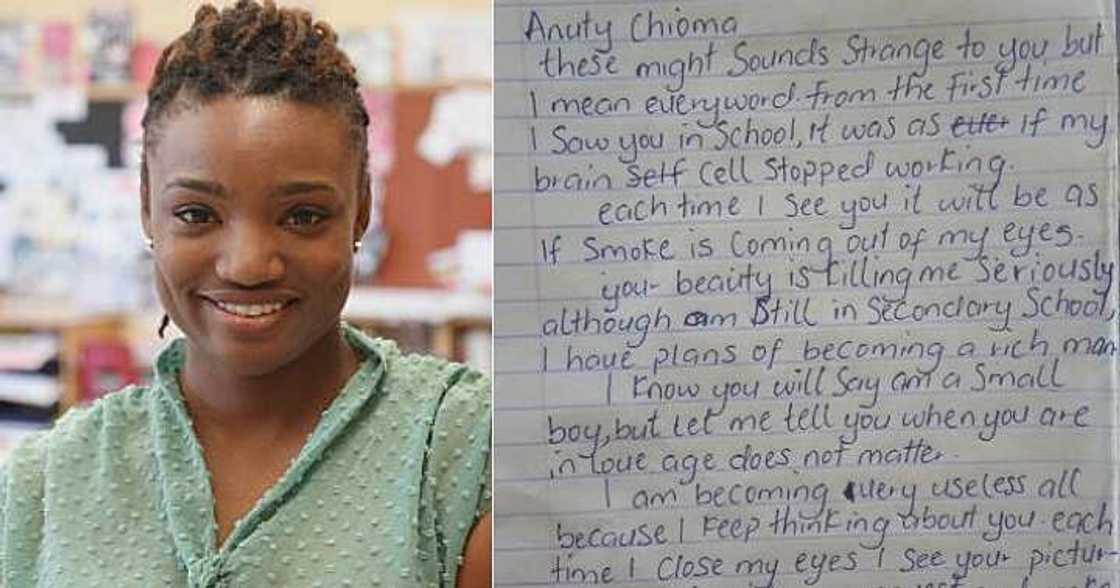 Anuty Chioma
these might Sounds Strange to you but
I mean everyword. from the First time
I Saw you in School, it was as if my
brain Self Cell Stopped working.
each time I See you it will be as
If Smoke is Coming out of my eyes.
your beauty is killing me Seriously
although am Still in Secondary School,
I have plans of becoming a rich man
I Know you will Say am a Small
boy, but let me tell you when you are
in love age does not matter.
I am becoming very useless all
because I Keep thinking about you. each
time I Close my eyes I See your pictur